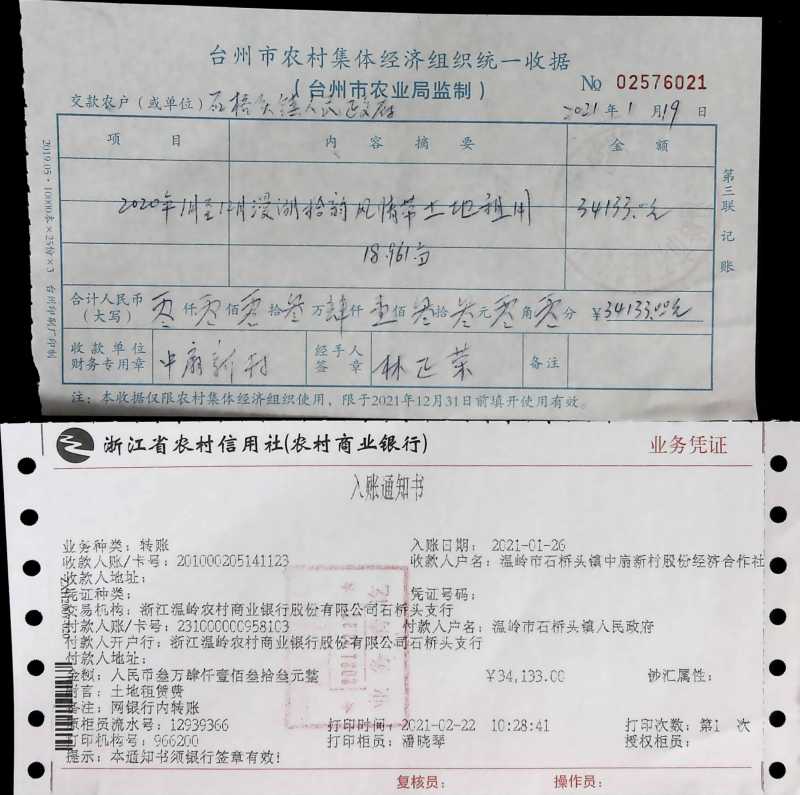 台州市农村集体经济组织统一收据
（台州市农业局监制）
No 02576021
交款农户（或单位）石桥头镇人民政府
2021年1月19日
项目 内容摘要 金额
2020年1月至12月漫湖拾韵风情带土地租用 34133.00元
18.961亩
合计人民币（大写） 零仟零佰零拾叁万肆仟壹佰叁拾叁元零角零分 ¥34133.00元
收款单位财务专用章 中扇新村 经手人签章 林正荣 备注
注：本收据仅限农村集体经济组织使用，限于2021年12月31日前填开使用有效。
第三联 记账
2019.05·10000本×25份×3 台州印刷厂印制
浙江省农村信用社(农村商业银行)
业务凭证
入账通知书
业务种类：转账 入账日期：2021-01-26
收款人账/卡号：201000205141123 收款人户名：温岭市石桥头镇中扇新村股份经济合作社
收款人地址：
凭证种类： 凭证号码：
交易机构：浙江温岭农村商业银行股份有限公司石桥头支行
付款人账/卡号：231000000958103 付款人户名：温岭市石桥头镇人民政府
付款人开户行：浙江温岭农村商业银行股份有限公司石桥头支行
付款人地址：
金额：人民币叁万肆仟壹佰叁拾叁元整 ¥34,133.00 钞汇属性：
附言：土地租赁费
备注：网银行内转账
原柜员流水号：12939366 打印时间：2021-02-22 10:28:41 打印次数：第1 次
打印机构号：966200 打印柜员：潘晓琴 授权柜员：
提示：本通知书须银行签章有效！
复核员： 操作员：